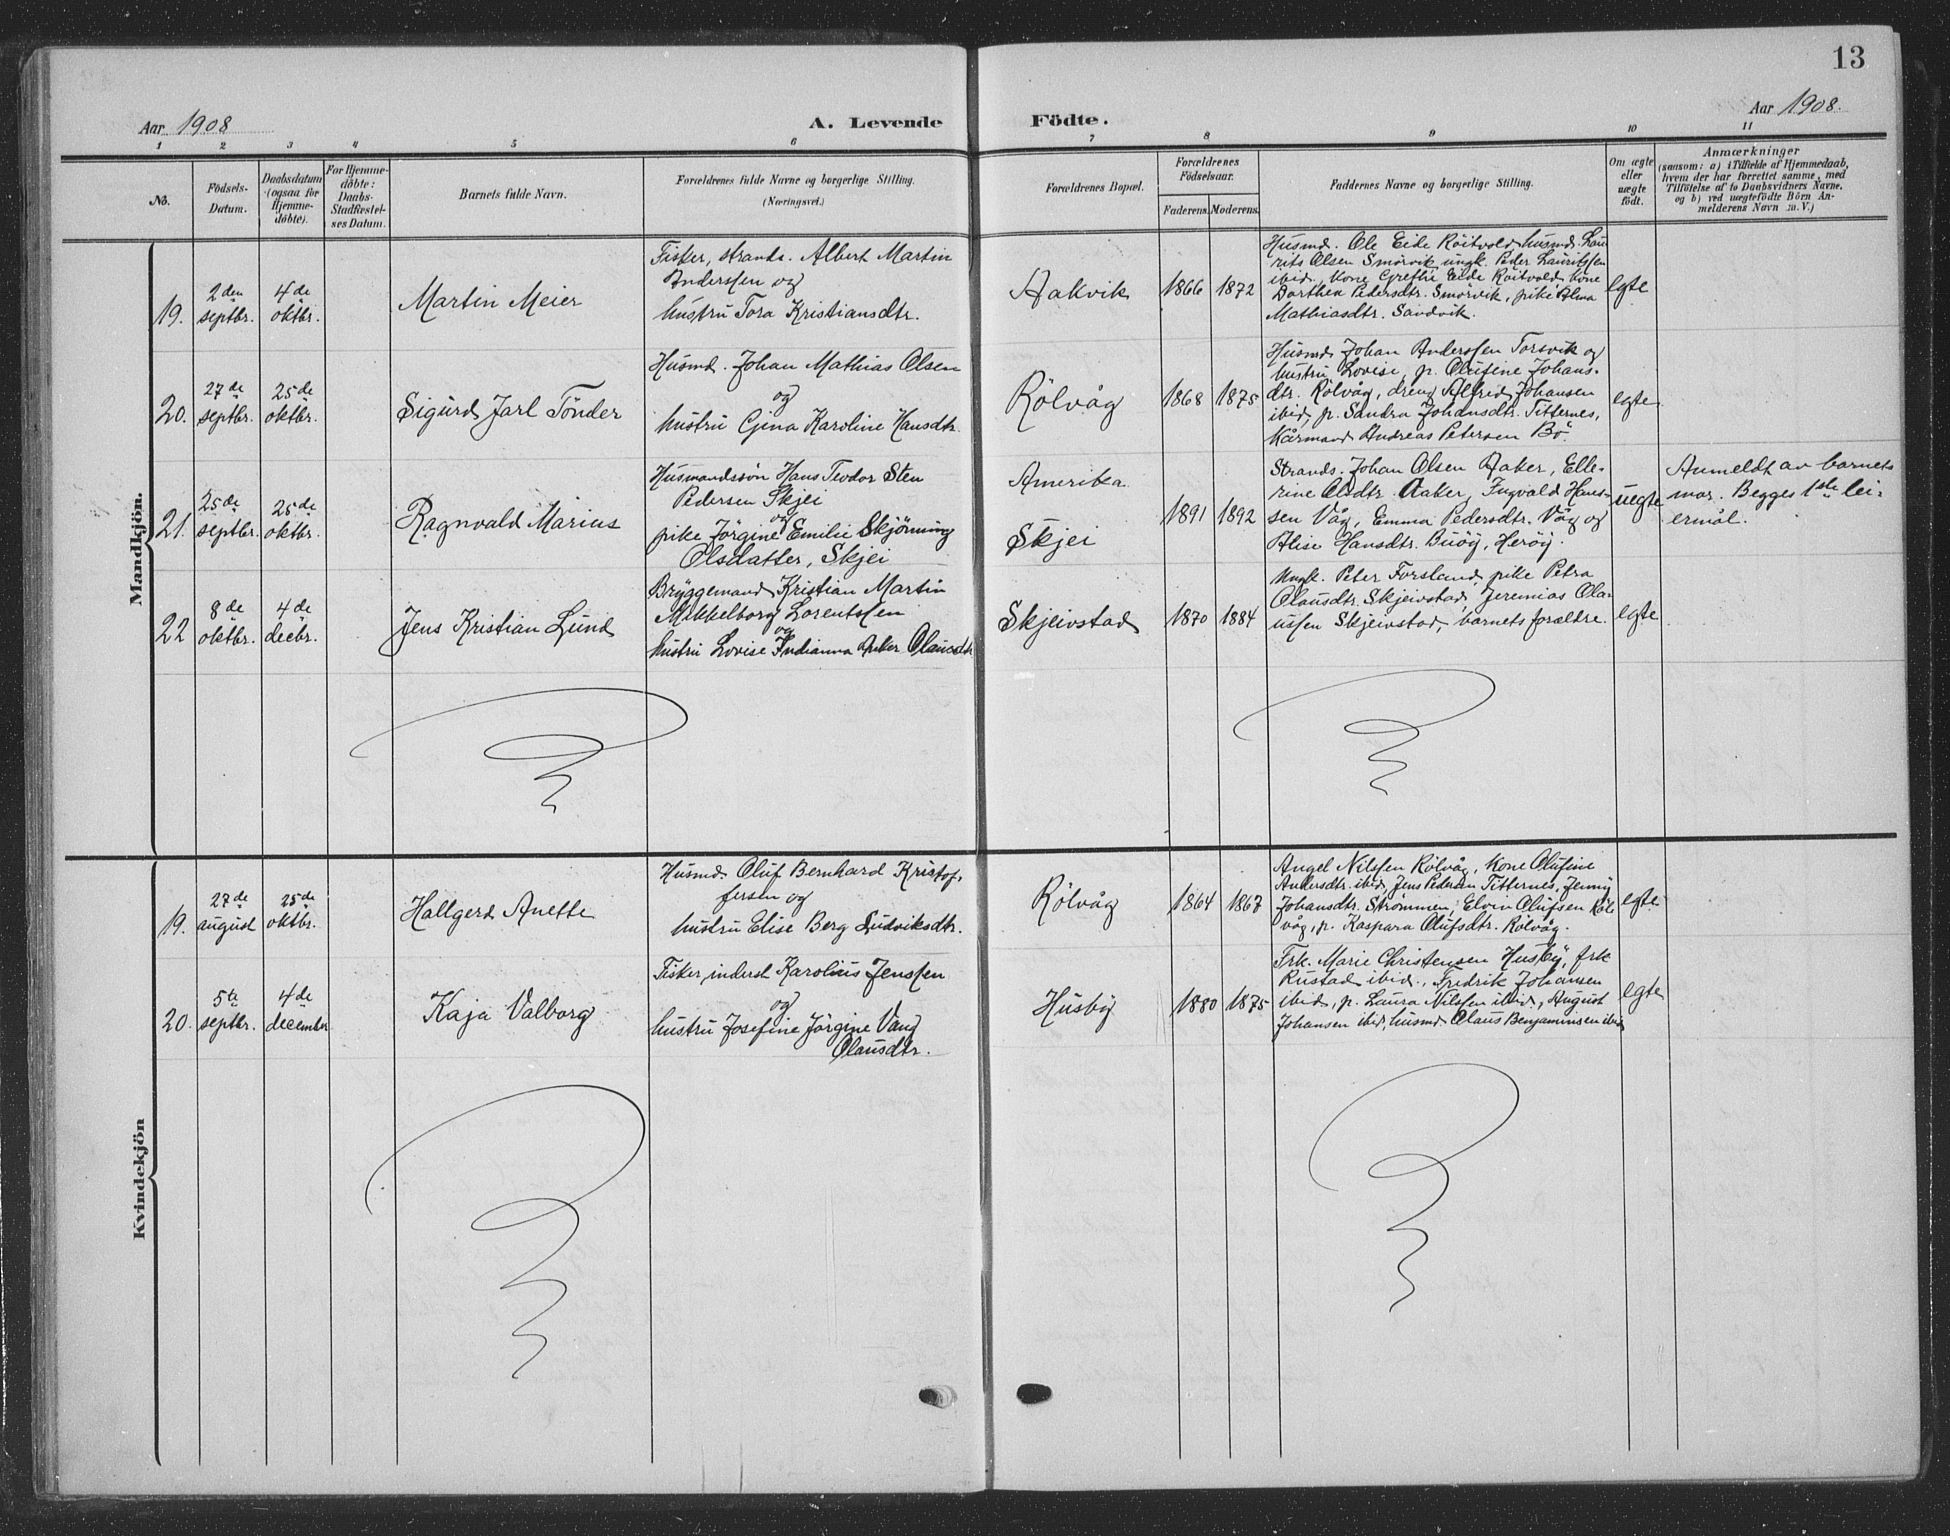 13
Aar 1908
A. Levende
Födte.
Aar 1908.
1 2 3 4 5 6 7 8 9 10 11
No.
Födsels-
Datum.
Daabsdatum
(ogsaa for
Hjemme-
döbte).
For Hjemme-
döbte:
Daabs-
Stadfæstel-
ses Datum.
Barnets fulde Navn.
Forældrenes fulde Navne og borgerlige Stilling.
(Næringsvei.)
Forældrenes Bopæl.
Forældrenes
Födselsaar.
Faderens. Moderens.
Faddernes Navne og borgerlige Stilling.
Om ægte
eller
uægte
födt.
Anmærkninger
(saasom: a) i Tilfælde af Hjemmedaab,
hvem der har forrettet samme, med
Tilföielse af to Daabsvidners Navne,
og b) ved uægtefödte Börn An-
melderens Navn m. V.)
Mandkjön.
19.
2den
septbr.
4de
oktbr.
Martin Meier
Fisker, strands. Albert Martin
Anderssen og
hustru Tora Kristiansdtr.
Aakvik
1866 1872
Husmd. Ole Eide Röitvold, husmd. Lau
rits Olsen Smörvik, ungk. Peder Lauritssen
ibid, kone Grethe Eide Röitvold, kone
Dorthea Pedersdtr. Smörvik, pike Alma
Mathiasdtr. Sandvik.
egte
20.
27de
septbr.
25de
oktbr.
Sigurd Jarl Tönder
Husmd. Johan Mathias Olsen
og
hustru Gjena Karoline Hansdtr.
Rölvåg
1868 1875
Husmd. Johan Anderssen Torsvik og
hustru Lovise, p. Olufine Johans-
dtr. Rölvåg, dreng Alfrid Johansen
ibid, p. Sandra Johansdtr. Titternes,
Kårmand Andreas Petersen Bö.
egte
21.
25de
septbr.
25de
oktbr.
Ragnvald Marius
Husmandssön Hans Teodor Sten
Pedersen Skjei
og
pike Jörgine Emilie Skjörning
Olsdatter, Skjei
Amerika
Skjei
1891 1892
Strands. Johan Olsen Aaker, Elle-
rine Olsdtr. Aaker, Ingvald Hans-
sen Våg, Emma Pedersdtr. Våg og
Alise Hansdtr. Buöy, Heröy.
uegte
Anmeldt av barnets
mor. Begges 1ste lei-
ermål.
22
8de
oktbr.
4de
decbr.
Jens Kristian Lund
Bryggemand Kristian Martin
Mikkelborg Lorentssen
og
hustru Lovise Indianna Aaker Olausdtr
Skjeivstad
1870 1884
Ungk. Peter Forsland, pike Petra
Olausdtr. Skjeivstad, Jeremias Ola-
ussen Skjeivstad, barnets forældre.
egte
Kvindekjön
19.
27de
august
25de
oktbr.
Hallgerd Anette
Husmd Oluf Bernhard Kristof-
fersen og
hustru Elise Berg Ludviksdtr.
Rölvåg
1864 1867
Angel Nilssen Rölvåg, kone Olufine
Andersdtr. ibid, Jens Pedersen Titternes, Jenny
Johansdtr. Strömmen, Elvin Olufsen Röl-
våg, p. Kaspara Olufsdtr. Rölvåg.
egte
20.
5te
septbr.
4de
december
Kaja Valborg
Fisker, inderst Karolius Jenssen
og
hustru Josefine Jörgine Vang
Olausdtr.
Husby
1880 1875
Frk. Marie Christensen Husby, frk
Rustad ibid., Fredrik Johansen
ibid, p. Laura Nilssen ibid, August
Johansen ibid, husmd Olaus Benjaminsen ibid
egte